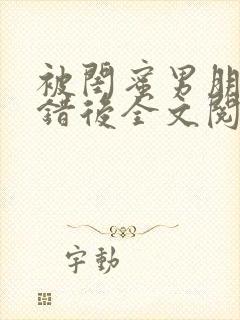 被閨蜜男朋
錯後全文閱
字動